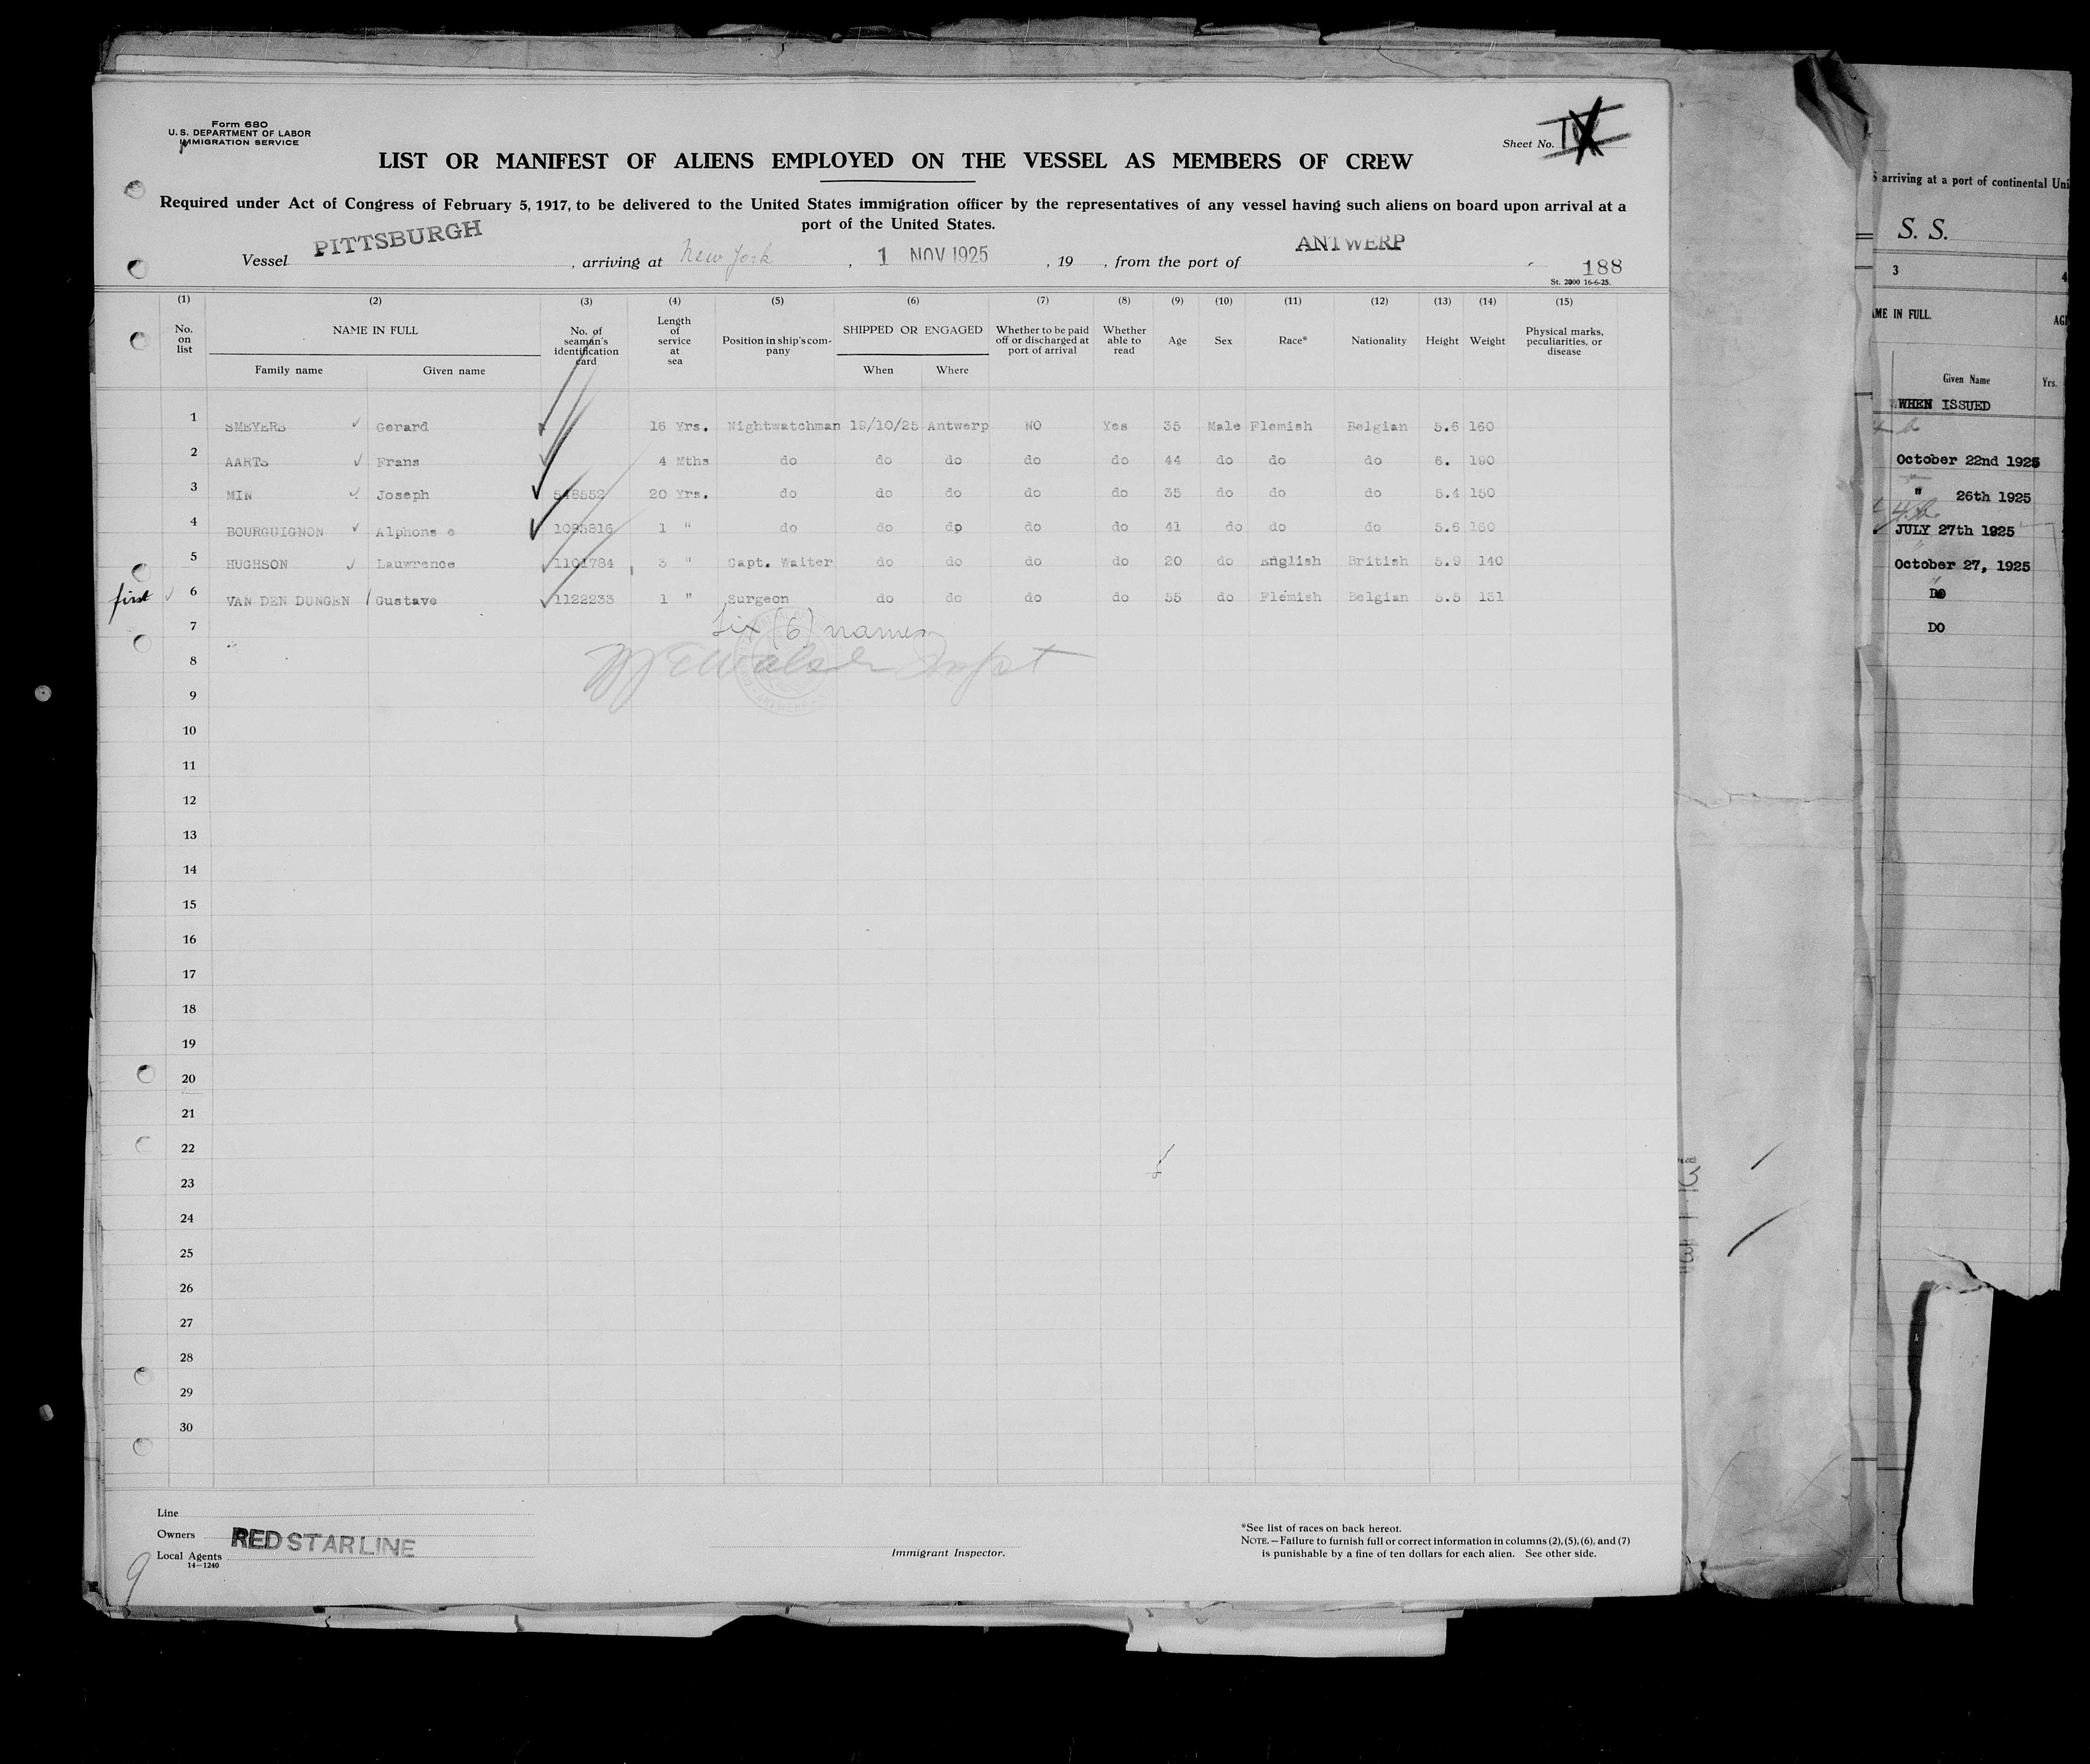 Form 680
U. S. DEPARTMENT OF LABOR
IMMIGRATION SERVICE
Sheet No.
LIST OR MANIFEST OF ALIENS EMPLOYED ON THE VESSEL AS MEMBERS OF CREW
Required under Act of Congress of February 5, 1917, to be delivered to the United States immigration officer by the representatives of any vessel having such aliens on board upon arrival at a
port of the United States.
Vessel PITTSBURGH , arriving at New York , 1 NOV 1925 , 19 , from the port of ANTWERP
188
St. 2000 16-6-25.
(1) (2) (3) (4) (5) (6) (7) (8) (9) (10) (11) (12) (13) (14) (15)
No. on list NAME IN FULL No. of seaman's identification card Length of service at sea Position in ship's company SHIPPED OR ENGAGED Whether to be paid off or discharged at port of arrival Whether able to read Age Sex Race* Nationality Height Weight Physical marks, peculiarities, or disease
Family name Given name When Where
1 SMEYERS Gerard 16 Yrs. Nightwatchman 19/10/25 Antwerp NO Yes 35 Male Flemish Belgian 5.6 160
2 AARTS Frans 4 Mths do do do do do 44 do do do 6. 190
3 MIN Joseph 548552 20 Yrs. do do do do do 35 do do do 5.4 150
4 BOURGUIGNON Alphons e 1085816 1 " do do do do do 41 do do do 5.6 150
5 HUGHSON Lauwrence 1101784 3 " Capt. Waiter do do do do 20 do English British 5.9 140
first 6 VAN DEN DUNGEN Gustave 1122233 1 " Surgeon do do do do 55 do Flemish Belgian 5.5 131
7 Six (6) names
8
9
10
11
12
13
14
15
16
17
18
19
20
21
22
23
24
25
26
27
28
29
30
Line
Owners RED STAR LINE
Local Agents
14—1240
9
Immigrant Inspector.
*See list of races on back hereof.
NOTE.—Failure to furnish full or correct information in columns (2), (5), (6), and (7)
is punishable by a fine of ten dollars for each alien. See other side.
S arriving at a port of continental Uni
S. S.
3 4
ME IN FULL. AG
Given Name Yrs.
WHEN ISSUED
October 22nd 1925
" 26th 1925
JULY 27th 1925
October 27, 1925
DO
DO